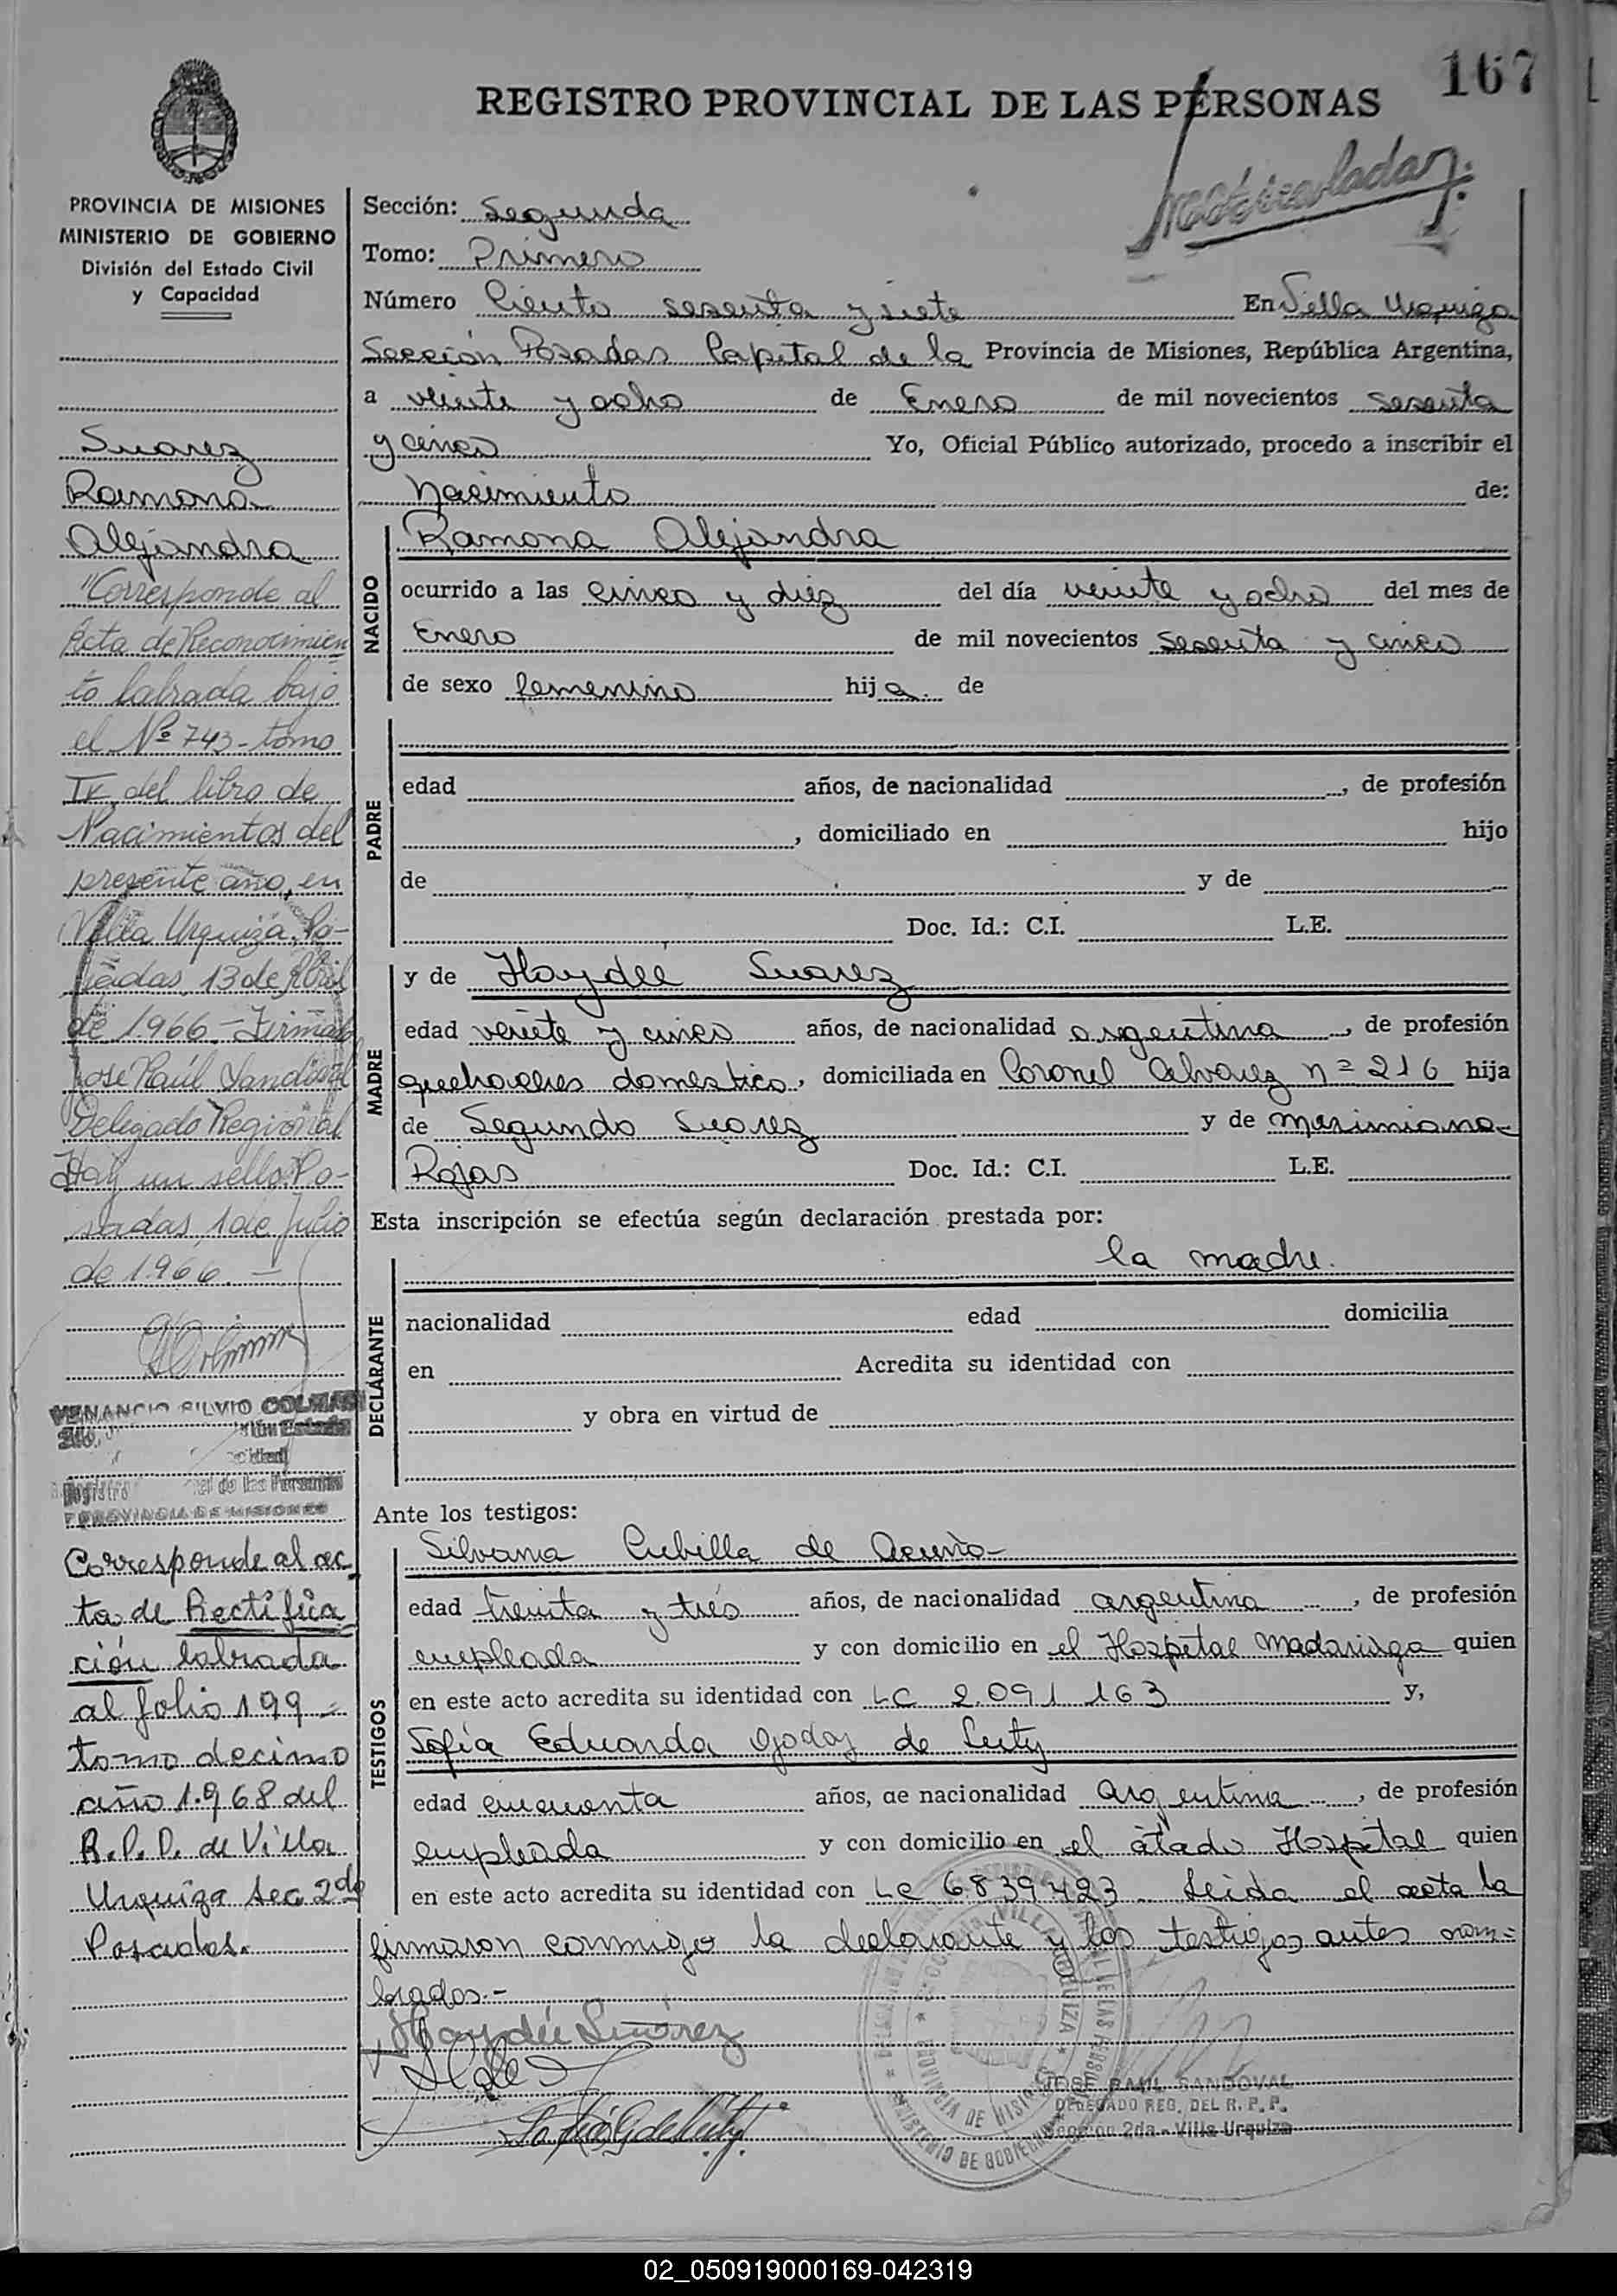 167
REGISTRO PROVINCIAL DE LAS PERSONAS
Matriculada
PROVINCIA DE MISIONES
MINISTERIO DE GOBIERNO
División del Estado Civil
y Capacidad
Suarez
Ramona
Alejandra
"Corresponde al
Acta de Reconocimien
to labrada bajo
el Nº 743-tomo
del libro de
Nacimientos del
presente año, en
Villa Urquiza, Po-
sadas, 13 de Abril
de 1.966.- Firmado
Jose Raúl Sandoval
Delegado Regional
Hay un sello. Po-
sadas, 1 de Julio
de 1.966.-
VENANCIO SILVIO
PROVINCIA DE MISIONES
Corresponde al ac
ta de Rectifica
ción labrada
al folio 199-
tomo decimo
año 1.968 del
R.P.P. de Villa
Urquiza Sec. 2da
Posadas.
Sección: Segunda
Tomo: Primero
Número Ciento sesenta y siete En Villa Urquiza
Sección Posadas Capital de la Provincia de Misiones, República Argentina,
a veinte y ocho de Enero de mil novecientos sesenta
y cinco Yo, Oficial Público autorizado, procedo a inscribir el
Nacimiento de:
NACIDO
Ramona Alejandra
ocurrido a las cinco y diez del día veinte y ocho del mes de
Enero de mil novecientos sesenta y cinco
de sexo femenino hija de
PADRE
edad años, de nacionalidad , de profesión
, domiciliado en hijo
de y de
Doc. Id.: C.I. L.E.
MADRE
y de Haydée Suarez
edad veinte y cinco años, de nacionalidad argentina , de profesión
quehaceres domestico, domiciliada en Coronel Alvarez nº 216 hija
de Segundo Suarez y de Maximiana
Rojas Doc. Id.: C.I. L.E.
Esta inscripción se efectúa según declaración prestada por:
DECLARANTE
la madre.
nacionalidad edad domicilia
en Acredita su identidad con
y obra en virtud de
Ante los testigos:
TESTIGOS
Silvana Cubilla de Acuña
edad treinta y tres años, de nacionalidad argentina , de profesión
empleada y con domicilio en el Hospital Madariaga quien
en este acto acredita su identidad con LC 2.091.163 y,
Sofía Eduarda Godoy de
edad cincuenta años, de nacionalidad Argentina , de profesión
empleada y con domicilio en el citado Hospital quien
en este acto acredita su identidad con LC 6839423. Leida el acta la
firmaron conmigo la declarante y los testigos antes nom=
brados.-
Haydée Suárez
JOSE RAUL SANDOVAL
DELEGADO REG. DEL R. P. P.
Sección 2da - Villa Urquiza
02_050919000169-042319